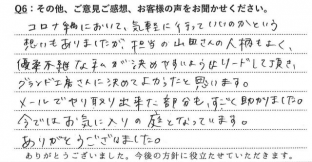 Q6：その他、ご意見ご感想、お客様の声をお聞かせください。
コロナ禍において、気軽に行っていいのかという
想いもありましたが、担当の山田さんの人柄もよく、
優柔不断な私が決めやすいようにリードして頂き、
グランド工房さんに決めてよかったと思います。
メールでやり取り出来た部分も、すごく助かりました。
今ではお気に入りの庭となっています。
ありがとうございました。
ありがとうございました。今後の方針に役立たせていただきます。